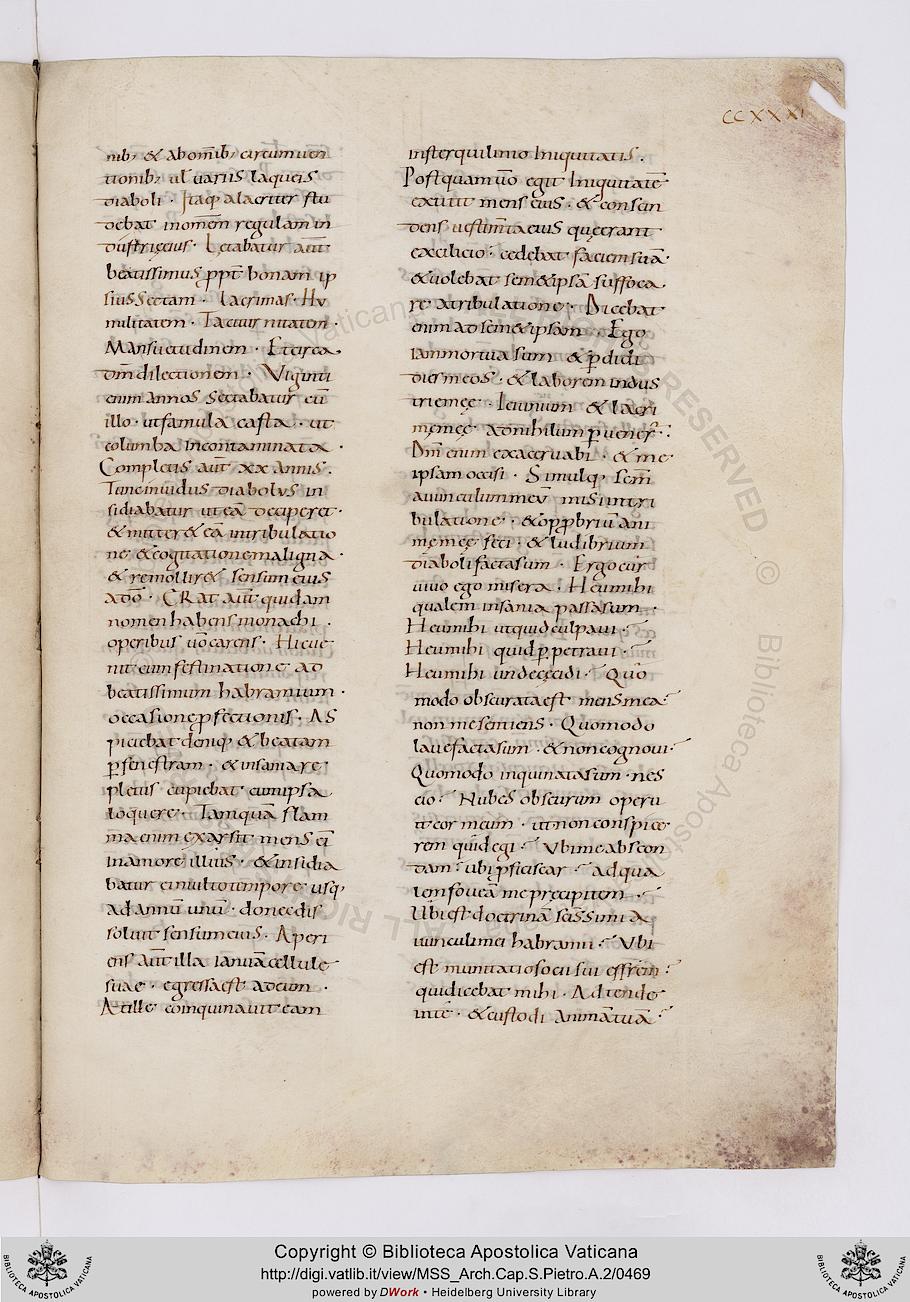 CCXXXI
nib; & abomib; circumuen
tionib; ul uariis laqueis
diaboli · Itaq; alacriter stu
debat inomem regulam in
dustrieeius · Lętabatur aut
beatissimus ꝓpt bonam ip
sius Sectam · lacrimas · Hu
militatem · Taciurnitatem ·
Mansuetudinem · Et circa
dm dilectionem · Viginti
enim annos Sectabatur cū
illo · ut famula casta · ut
columba Incontaminata ·
Completis aut xx annis ·
Tunc inuidus diabolus in
sidiabatur ut eā deciperet ·
& mitter& eā intribulatio
ne · & cogitatione maligna ·
& remollir& sensum eius
a dō · ERat aut quidam
nomen habens monachi ·
operibus uō carens · Hic ue
nit cum festinatione ad
beatissimum habramium ·
occasione ꝓfectionis · AS
piciebat deniq; & beatam
ꝑ fenestram · & insania re
pletus cupiebat cum ipsa
loquere · Tamquā flam
ma enim exarsit mens ei
in amore illius · & insidia
batur ei multo tempore usq;
ad annū unū · donec dis
soluit sensum eius · Aperi
ens aut illa ianuā cellule
suae · egressa est ad eum ·
At ille coinquinauit eam
in sterquilinio Iniquitatis ·
Postquam uō egit Iniquitatē
excutit mens eius · & conscin
dens uestimta eius que erant
ex cilicio · cedebat faciem suā ·
& uolebat sem&ipsā suffoca
re a tribulatione · Dicebat
enim ad sem&ipsam · Ego
iam mortua sum & ꝑdidi
dies meos · & laborem indus
trie meę · Ieiunium & lacri
mę meę ad nihilum ꝑuener̄ ·
Dm enim exaceruabi · & me
ipsam occisi · Simulq; scm
auunculum meū misi in tri
bulatione · & opꝓbriū ani
mę meę feci · & ludibrium
diaboli facta sum · Ergo cur
uiuo ego misera · Heu mihi
qualem insania passa sum ·
Heu mihi ut quid culpaui ·
Heu mihi quid ꝑpetraui ·
Heu mihi unde cecidi · Quo
modo obscurata est mens mea
non me sentiens · Quomodo
laue facta sum · & non cognoui ·
Quomodo inquinata sum · nes
cio · Nubes obscurum operu
it cor meum · ut non conspice
rem quid egi · Vbi me abscon
dam · ubi ꝓficiscar · ad qua
lem foueā me pręcipitem ·
Ubi est doctrinā scissimi a
uunculi mei habrami · Vbi
est munitatio socii sui effrem
qui dicebat mihi · Adtende
in te · & custodi animā tuā
Copyright © Biblioteca Apostolica Vaticana
http://digi.vatlib.it/view/MSS_Arch.Cap.S.Pietro.A.2/0469
powered by DWork • Heidelberg University Library